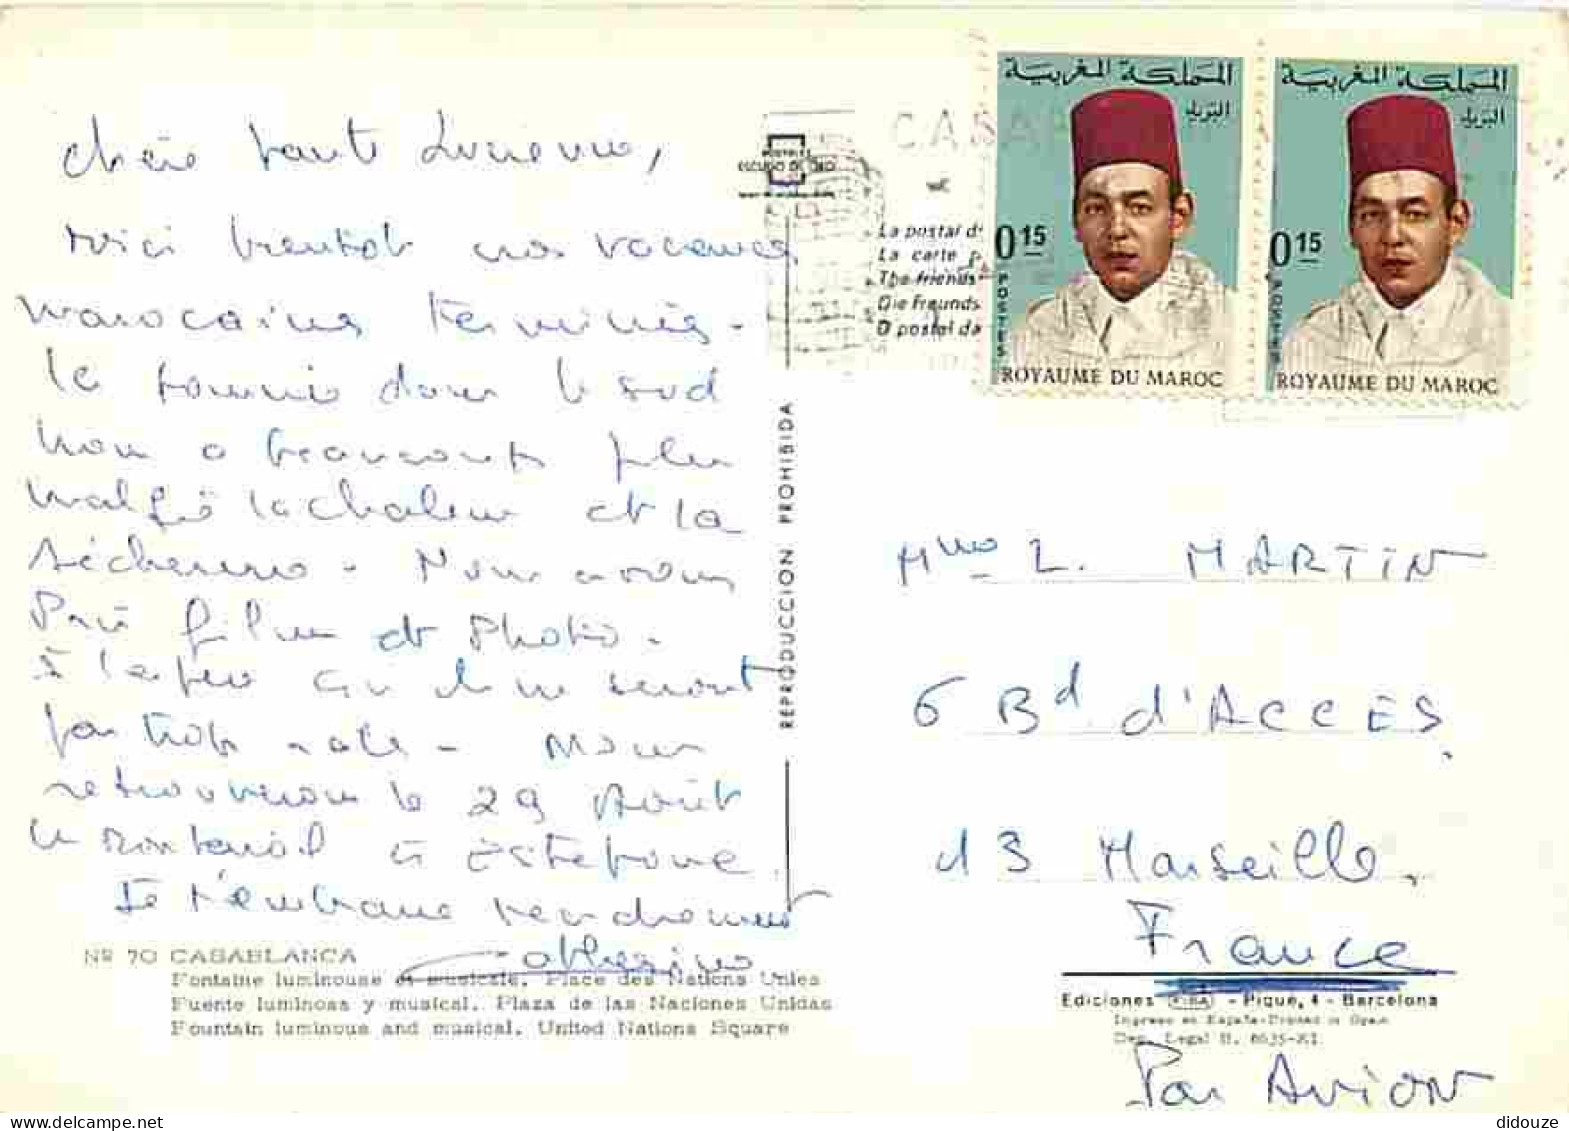 Chère tante Lucienne,
Voici bientôt nos vacances
marocaines terminées.
la tournée dans le sud
nous a beaucoup plu
malgré la chaleur et la
sécheresse. Nous avons
Pris films et Photos.
J'espère qu'elles seront
pas trop ratés. Nous
retrouverons le 29 Août
à Estepone.
Je t'embrasse tendrement
Catherine
Nº 70 CASABLANCA
Fontaine lumineuse et musicale. Place des Nations Unies
Fuente luminosa y musical. Plaza de las Naciones Unidas
Fountain luminous and musical. United Nations Square
POSTALES
ESCUDO DE ORO
CASA
La postal d
La carte p
The friends
Die Freunds
O postal da
REPRODUCCION PROHIBIDA
المملكة المغربية
البريد
0 15
POSTES
ROYAUME DU MAROC
المملكة المغربية
البريد
0 15
POSTES
ROYAUME DU MAROC
Mme L. MARTIN
6 Bd d'ACCES
13 Marseille.
France
Ediciones - Pique, 4 - Barcelona
Impreso en España-Printed in Spain
Dep. Legal B. 8635-XI
Par AVION
didouze